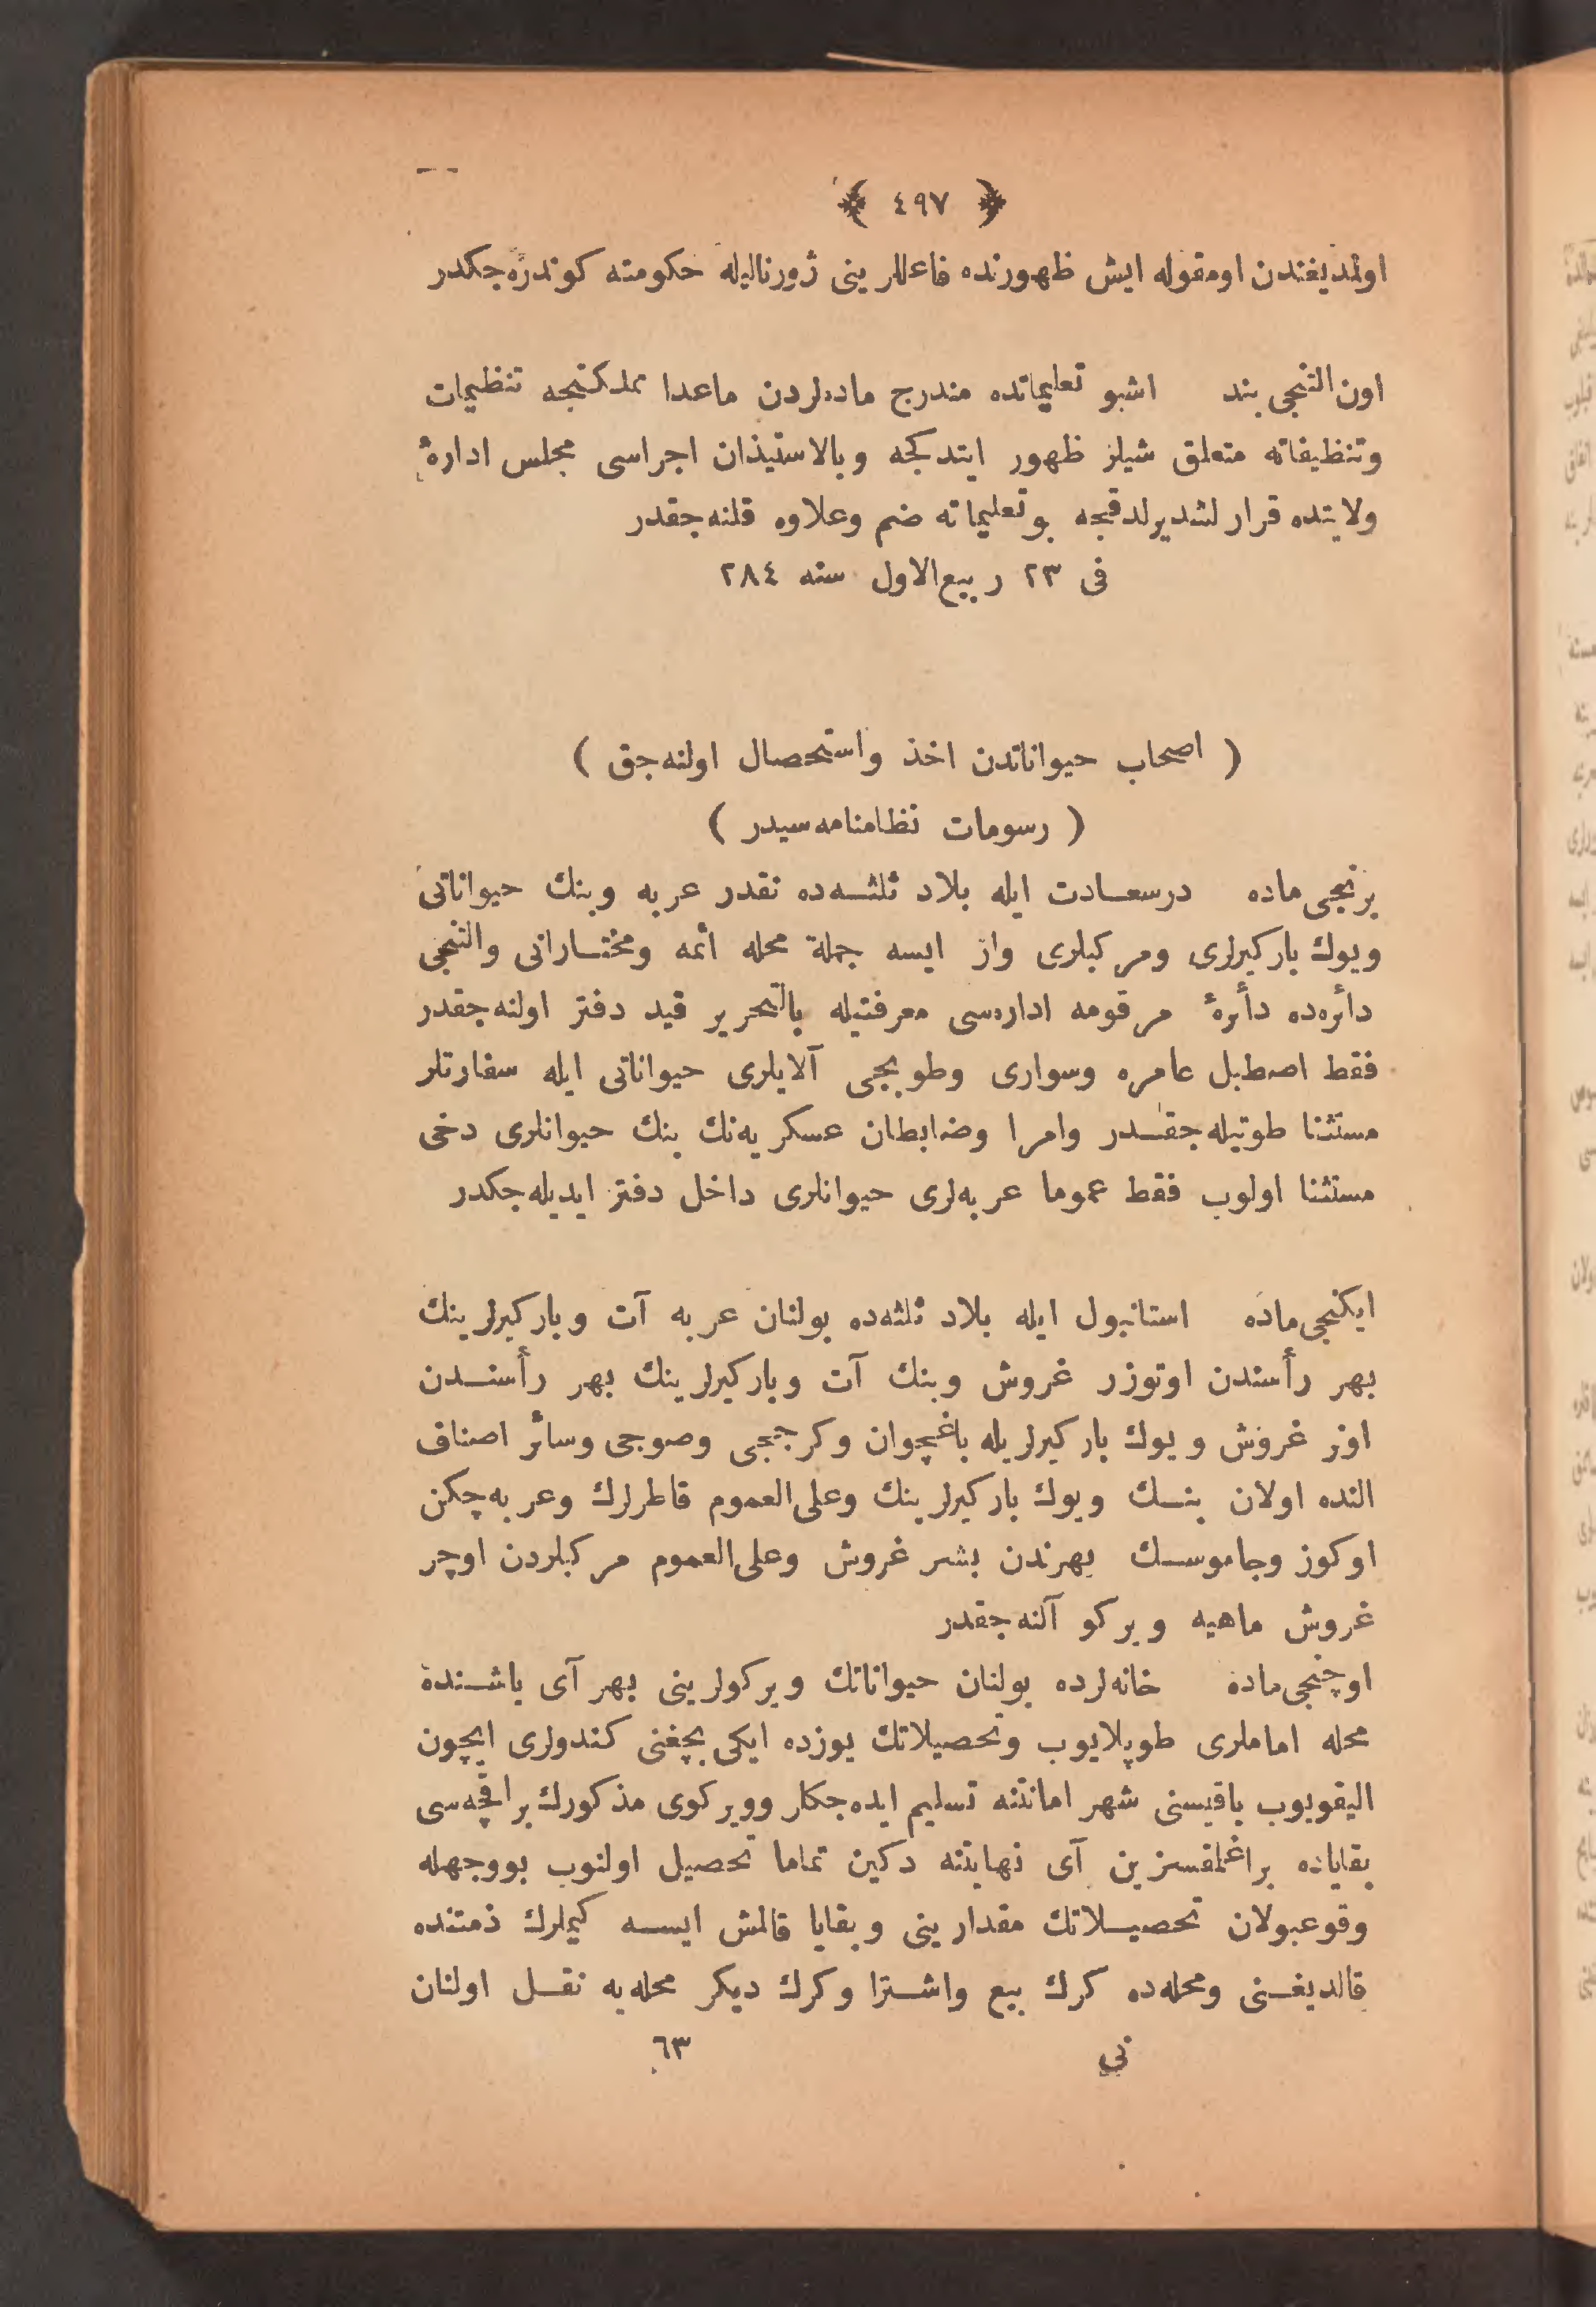 ﴿ ٤٩٧ ﴾
اولمديغندن اومقوله ايش ظهورنده فاعللرينى ژورناليله حكومته كوندره‌جكدر
اون‌التنجى بند اشبو تعليماتده مندرج ماده‌لردن ماعدا تمدكنجه تنظيمات
وتنظيفاته متعلق شيلر ظهور ايتدكجه وبالاستيذان اجراسى مجلس ادارۀ
ولايتده قرارلشديرلدقجه بوتعليماته ضم وعلاوه قلنه‌جقدر
فى ٢٣ ربيع‌الاول سنه ٢٨٤
( اصحاب حيواناتدن اخذ واستحصال اولنه‌جق )
( رسومات نظامنامه‌سيدر )
برنجى‌ماده درسعادت ايله بلاد ثلثه‌ده نقدر عربه وبنك حيواناتى
ويوك باركيرلرى ومركبلرى وار ايسه جملۀ محله ائمه ومختاراتى والتنجى
دائره‌ده دائرۀ مرقومه اداره‌سى معرفتيله بالتحرير قيد دفتر اولنه‌جقدر
فقط اصطبل عامره وسوارى وطوبجى آلايلرى حيواناتى ايله سفارتلر
مستثنا طوتيله‌جقدر وامرا وضابطان عسكريه‌نك بنك حيوانلرى دخى
مستثنا اولوب فقط عموما عربه‌لرى حيوانلرى داخل دفتر ايديله‌جكدر
ايكنجى‌ماده استانبول ايله بلاد ثلثه‌ده بولنان عربه آت وباركيرلرينك
بهر رأسندن اوتوزر غروش وبنك آت وباركيرلرينك بهر رأسندن
اونر غروش ويوك باركيرلريله باغچوان وكرجيجى وصوجى وسائر اصناف
النده اولان بنك ويوك باركيرلرينك وعلى‌العموم قاطرلرك وعربه‌چكن
اوكوز وجاموسك بهرندن بشر غروش وعلى‌العموم مركبلردن اوچر
غروش ماهيه ويركو آلنه‌جقدر
اوچنجى‌ماده خانه‌لرده بولنان حيواناتك ويركولرينى بهر آى باشنده
محله اماملرى طوپلايوب وتحصيلاتك يوزده ايكى بچغنى كندولرى ايچون
اليقويوب باقيسنى شهر امانتنه تسليم ايده‌جكلر وويركوى مذكورك براقچه‌سى
بقاياده براغلمقسزين آى نهايتنه دكين تماما تحصيل اولنوب بووجهله
وقوعبولان تحصيلاتك مقدارينى وبقايا قالمش ايسه كيملرك ذمتنده
قالديغنى ومحله‌ده كرك بيع واشترا وكرك ديكر محله‌يه نقل اولنان
نى ٦٣